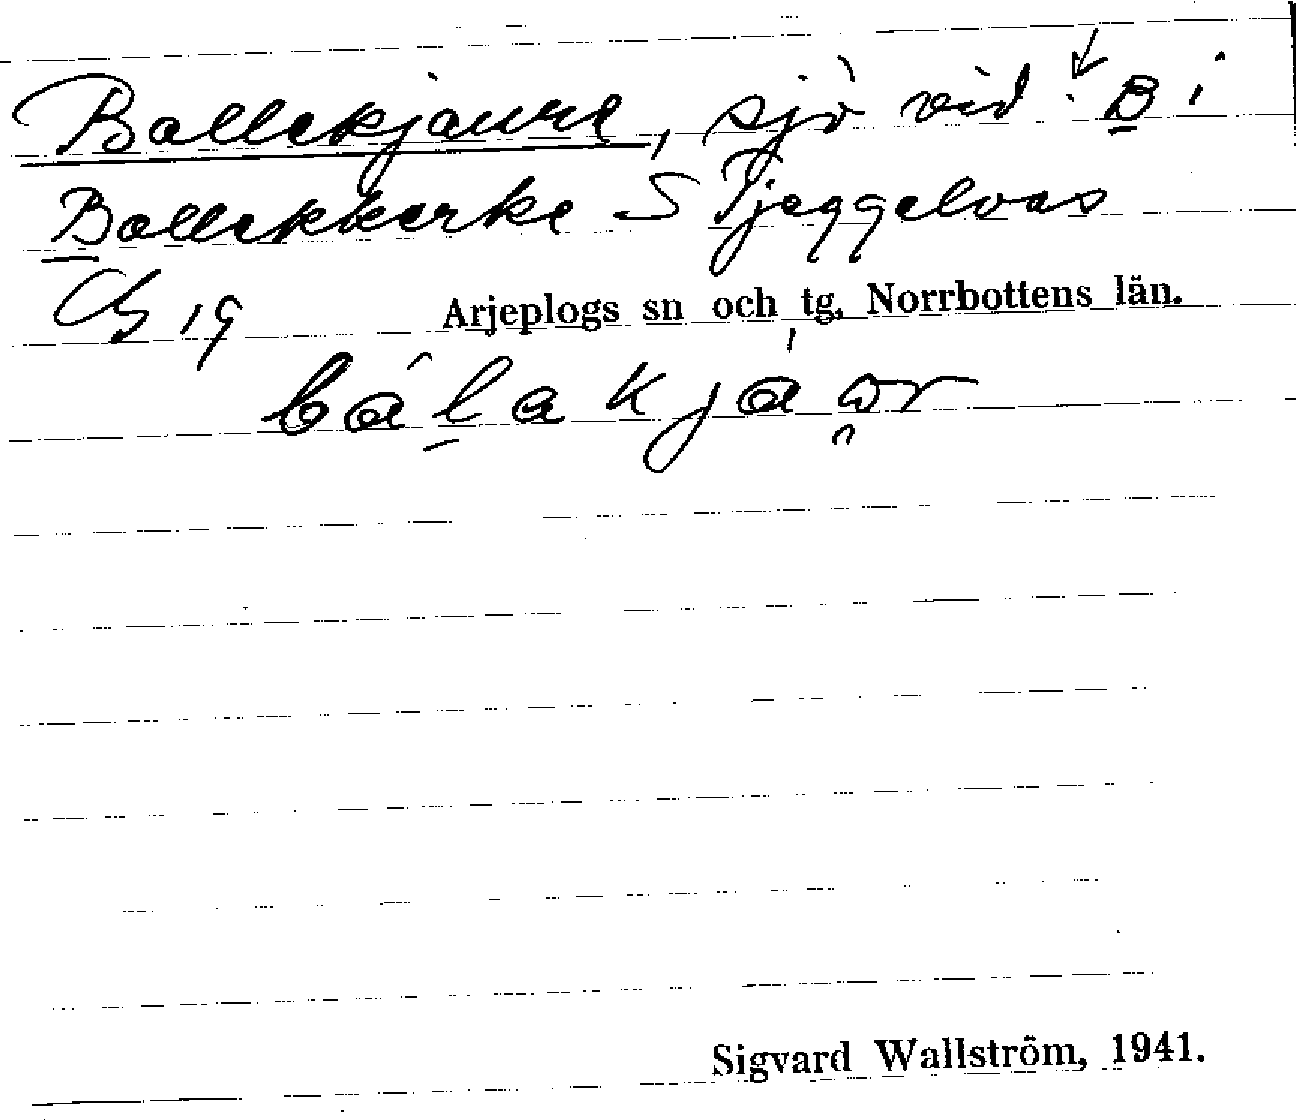 Ballekjaure, sjö vid B i
Ballekkerke S Tjeggelvas
Cb 19 Arjeplogs sn och tg, Norrbottens län.
Sigvard Wallström, 1941.